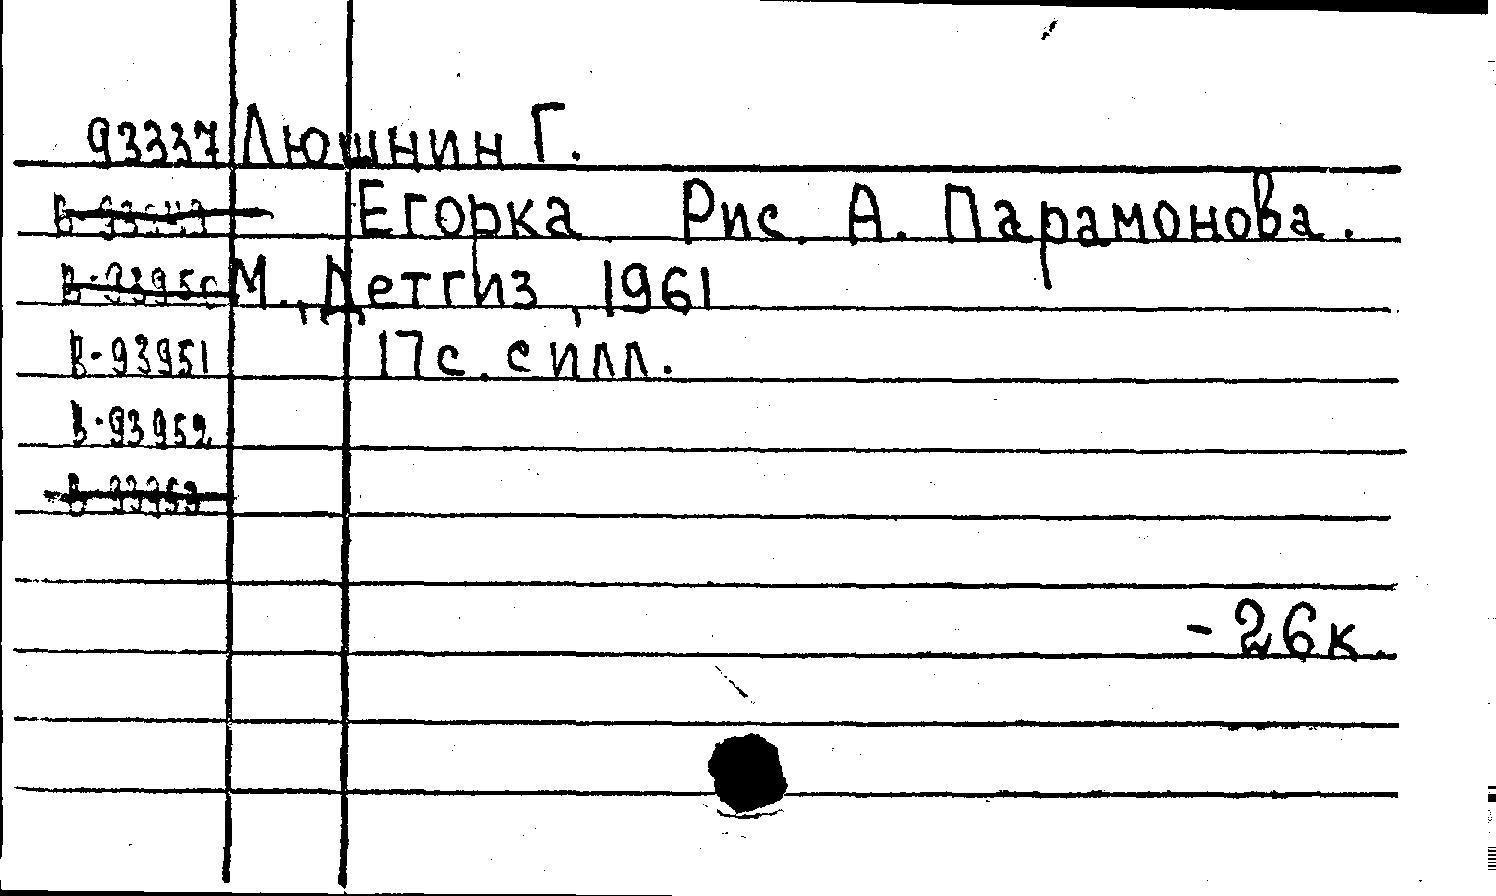 93337 Люшнин Г.
Егорка Рис. А. Парамонова.
В-93950 М., Детгиз, 1961
В-93951 17с. с илл.
В-93952
В-93953
-26к.